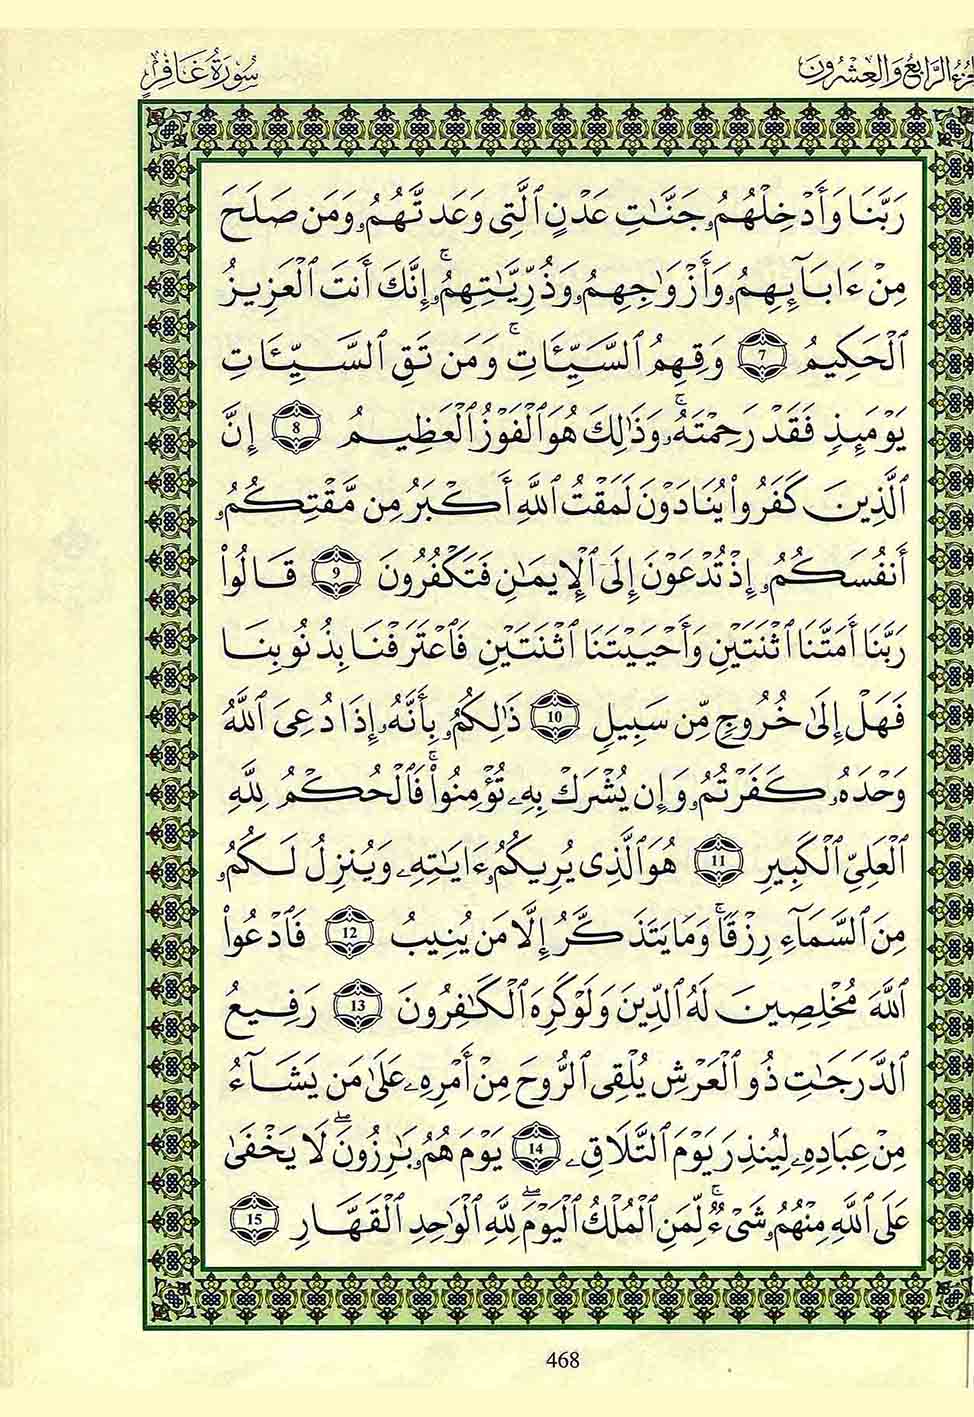 الرَّابِعُ وَالعِشْرُونَ
سُورَةُ غَافِرٍ
رَبَّنَا وَأَدْخِلْهُمُۥ جَنَّٰتِ عَدْنٍ ٱلَّتِى وَعَدتَّهُمُۥ وَمَن صَلَحَ
مِنْ ءَابَآئِهِمُۥ وَأَزْوَٰجِهِمُۥ وَذُرِّيَّٰتِهِمُۥٓۚ إِنَّكَ أَنتَ ٱلْعَزِيزُ
ٱلْحَكِيمُ 7 وَقِهِمُ ٱلسَّيِّـَٔاتِۚ وَمَن تَقِ ٱلسَّيِّـَٔاتِ
يَوْمَئِذٍ فَقَدْ رَحِمْتَهُۥۚ وَذَٰلِكَ هُوَ ٱلْفَوْزُ ٱلْعَظِيمُ 8 إِنَّ
ٱلَّذِينَ كَفَرُواْ يُنَادَوْنَ لَمَقْتُ ٱللَّهِ أَكْبَرُ مِن مَّقْتِكُمُۥ
أَنفُسَكُمُۥ إِذْ تُدْعَوْنَ إِلَى ٱلْإِيمَٰنِ فَتَكْفُرُونَ 9 قَالُواْ
رَبَّنَا أَمَتَّنَا ٱثْنَتَيْنِ وَأَحْيَيْتَنَا ٱثْنَتَيْنِ فَٱعْتَرَفْنَا بِذُنُوبِنَا
فَهَلْ إِلَىٰ خُرُوجٍ مِّن سَبِيلٍ 10 ذَٰلِكُمُۥ بِأَنَّهُۥ إِذَا دُعِىَ ٱللَّهُ
وَحْدَهُۥ كَفَرْتُمُۥ وَإِن يُشْرَكْ بِهِۦ تُؤْمِنُواْۚ فَٱلْحُكْمُ لِلَّهِ
ٱلْعَلِىِّ ٱلْكَبِيرِ 11 هُوَ ٱلَّذِى يُرِيكُمُۥ ءَايَٰتِهِۦ وَيُنزِلُ لَكُمُۥ
مِنَ ٱلسَّمَآءِ رِزْقًاۚ وَمَا يَتَذَكَّرُ إِلَّا مَن يُنِيبُ 12 فَٱدْعُواْ
ٱللَّهَ مُخْلِصِينَ لَهُ ٱلدِّينَ وَلَوْ كَرِهَ ٱلْكَٰفِرُونَ 13 رَفِيعُ
ٱلدَّرَجَٰتِ ذُو ٱلْعَرْشِ يُلْقِى ٱلرُّوحَ مِنْ أَمْرِهِۦ عَلَىٰ مَن يَشَآءُ
مِنْ عِبَادِهِۦ لِيُنذِرَ يَوْمَ ٱلتَّلَاقِۦ 14 يَوْمَ هُمُۥ بَٰرِزُونَۖ لَا يَخْفَىٰ
عَلَى ٱللَّهِ مِنْهُمُۥ شَىْءٌۚ لِّمَنِ ٱلْمُلْكُ ٱلْيَوْمَۖ لِلَّهِ ٱلْوَٰحِدِ ٱلْقَهَّارِ 15
468